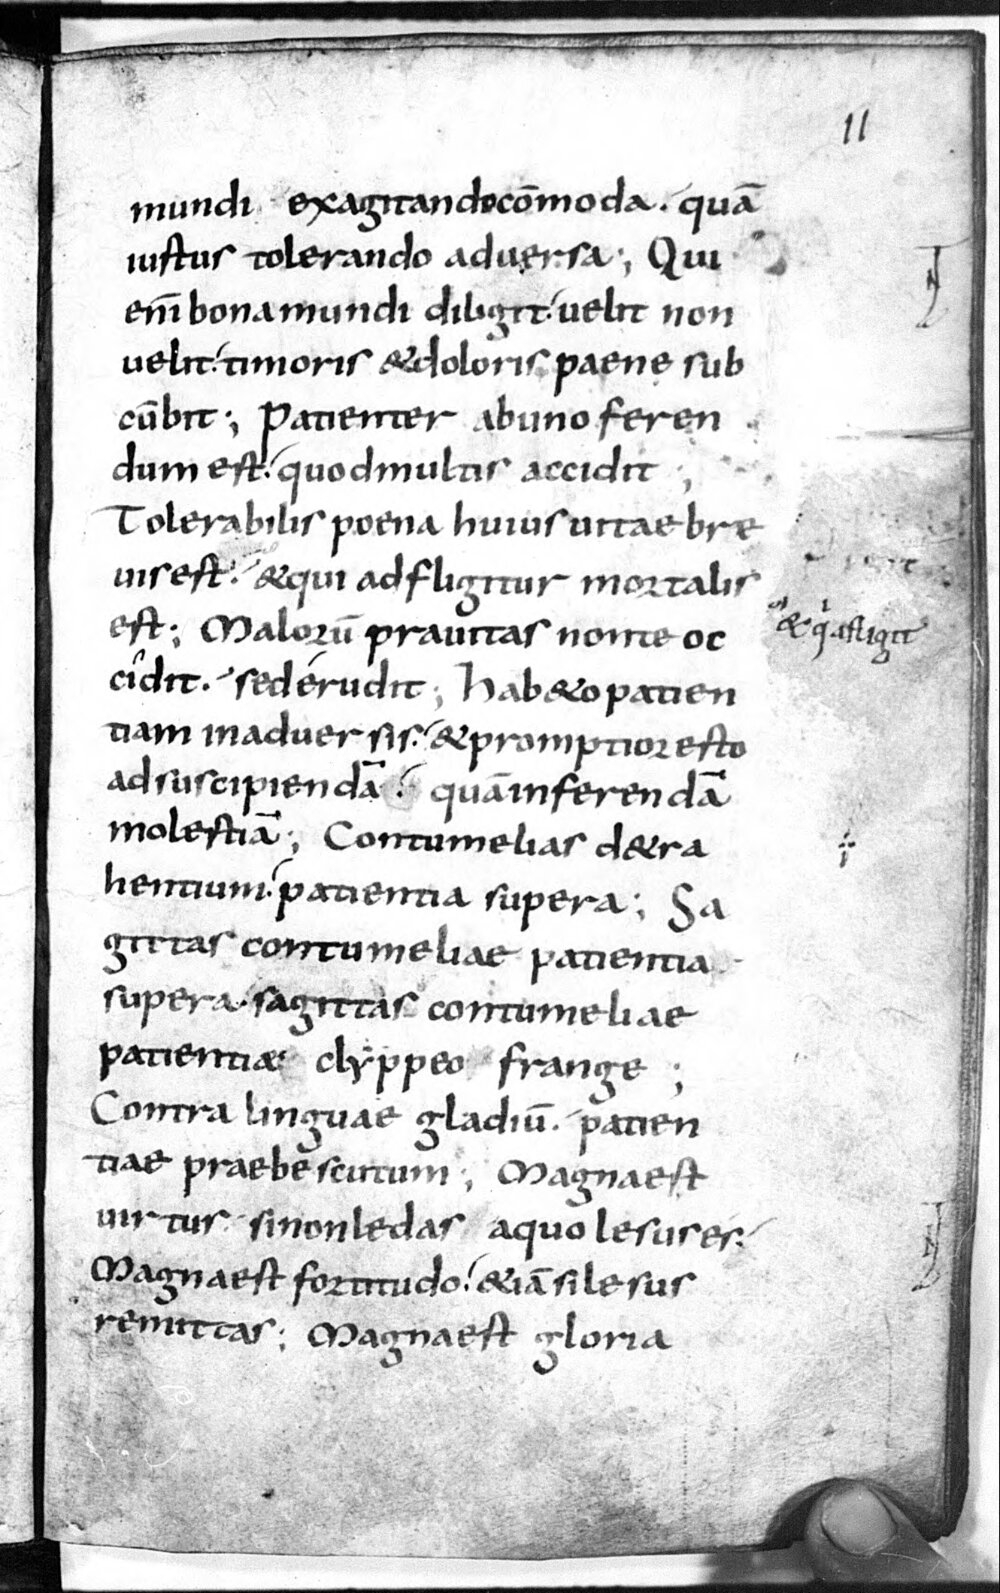 11
mundi exagitando cōmoda. quā
iustus tolerando aduersa; Qui
enī bona mundi diligit. uelit non
uelit. timoris & doloris paene sub
cūbit; Patienter ab uno feren
dum est. quod multis accidit;
Tolerabilis poena huius uitae bre
uis est. & qui adfligitur mortalis
est; Malorū prauitas non te oc
cidit. sed erudit; hab&o patien
& q afligit
tiam in aduersis. & promptior esto
ad suscipiendā. quā inferendā
molestiā; Contumelias d&ra
hentium. patientia supera; Sa
gittas contumeliae patientia
supera. sagittas contumeliae
patientiae clyppeo frange;
Contra linguae gladiū. patien
tiae praebe scutum; Magna est
uirtus si non ledas a quo lesus es.
Magna est fortitudo. &iā si lesus
remittas; Magna est gloria